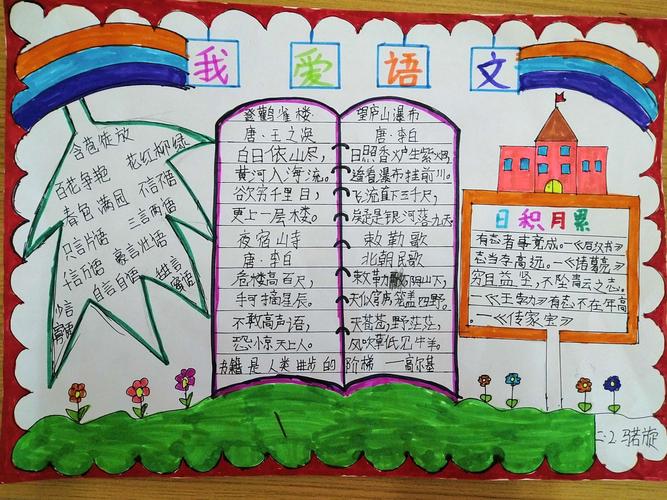 我爱语文
含苞绽放
花红柳绿
百花争艳
春色满园
不言不语
三言两语
只言片语
千言万语
豪言壮语
自言自语
甜言蜜语
登鹳雀楼
唐·王之涣
白日依山尽，
黄河入海流。
欲穷千里目，
更上一层楼。
夜宿山寺
唐·李白
危楼高百尺，
手可摘星辰。
不敢高声语，
恐惊天上人。
望庐山瀑布
唐·李白
日照香炉生紫烟，
遥看瀑布挂前川。
飞流直下三千尺，
疑是银河落九天。
敕勒歌
北朝民歌
敕勒川阴山下，
天似穹庐笼盖四野。
天苍苍，野茫茫，
风吹草低见牛羊。
书籍是人类进步的阶梯 —高尔基
日积月累
有志者事竟成。—《后汉书》
志当存高远。—《诸葛亮》
穷且益坚，不坠青云之志。
—《王勃》有志不在年高
—《传家宝》
二.2 骆旋